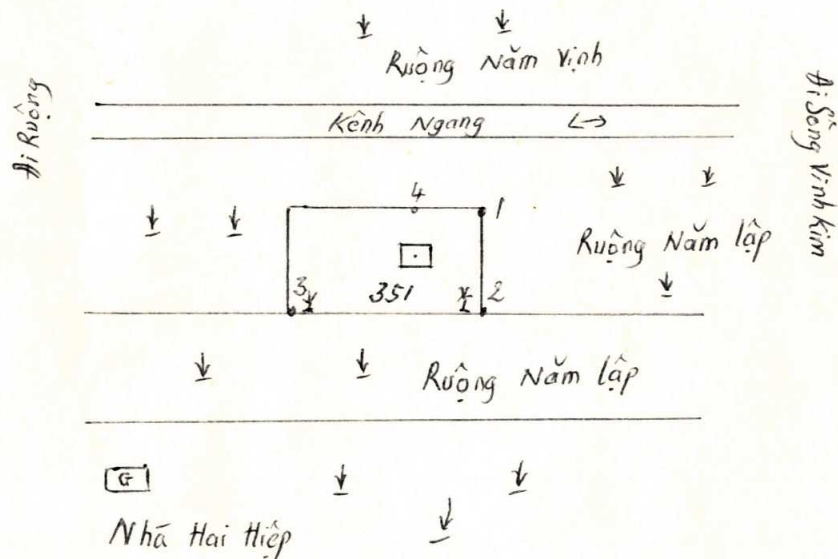 Ruộng Năm Vịnh
Đi Ruộng
Kênh Ngang
Đi Sông Vĩnh Kim
4
1
Ruộng Năm lập
3
351
2
Ruộng Năm lập
G
Nhà Hai Hiệp